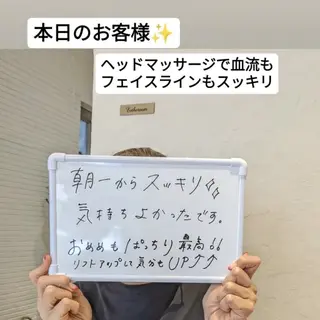 本日のお客様✨
ヘッドマッサージで血流も
フェイスラインもスッキリ
朝一からスッキリ✨
気持ちよかったです。
おめめもぱっちり最高!!
リフトアップして気分もUP↑↑